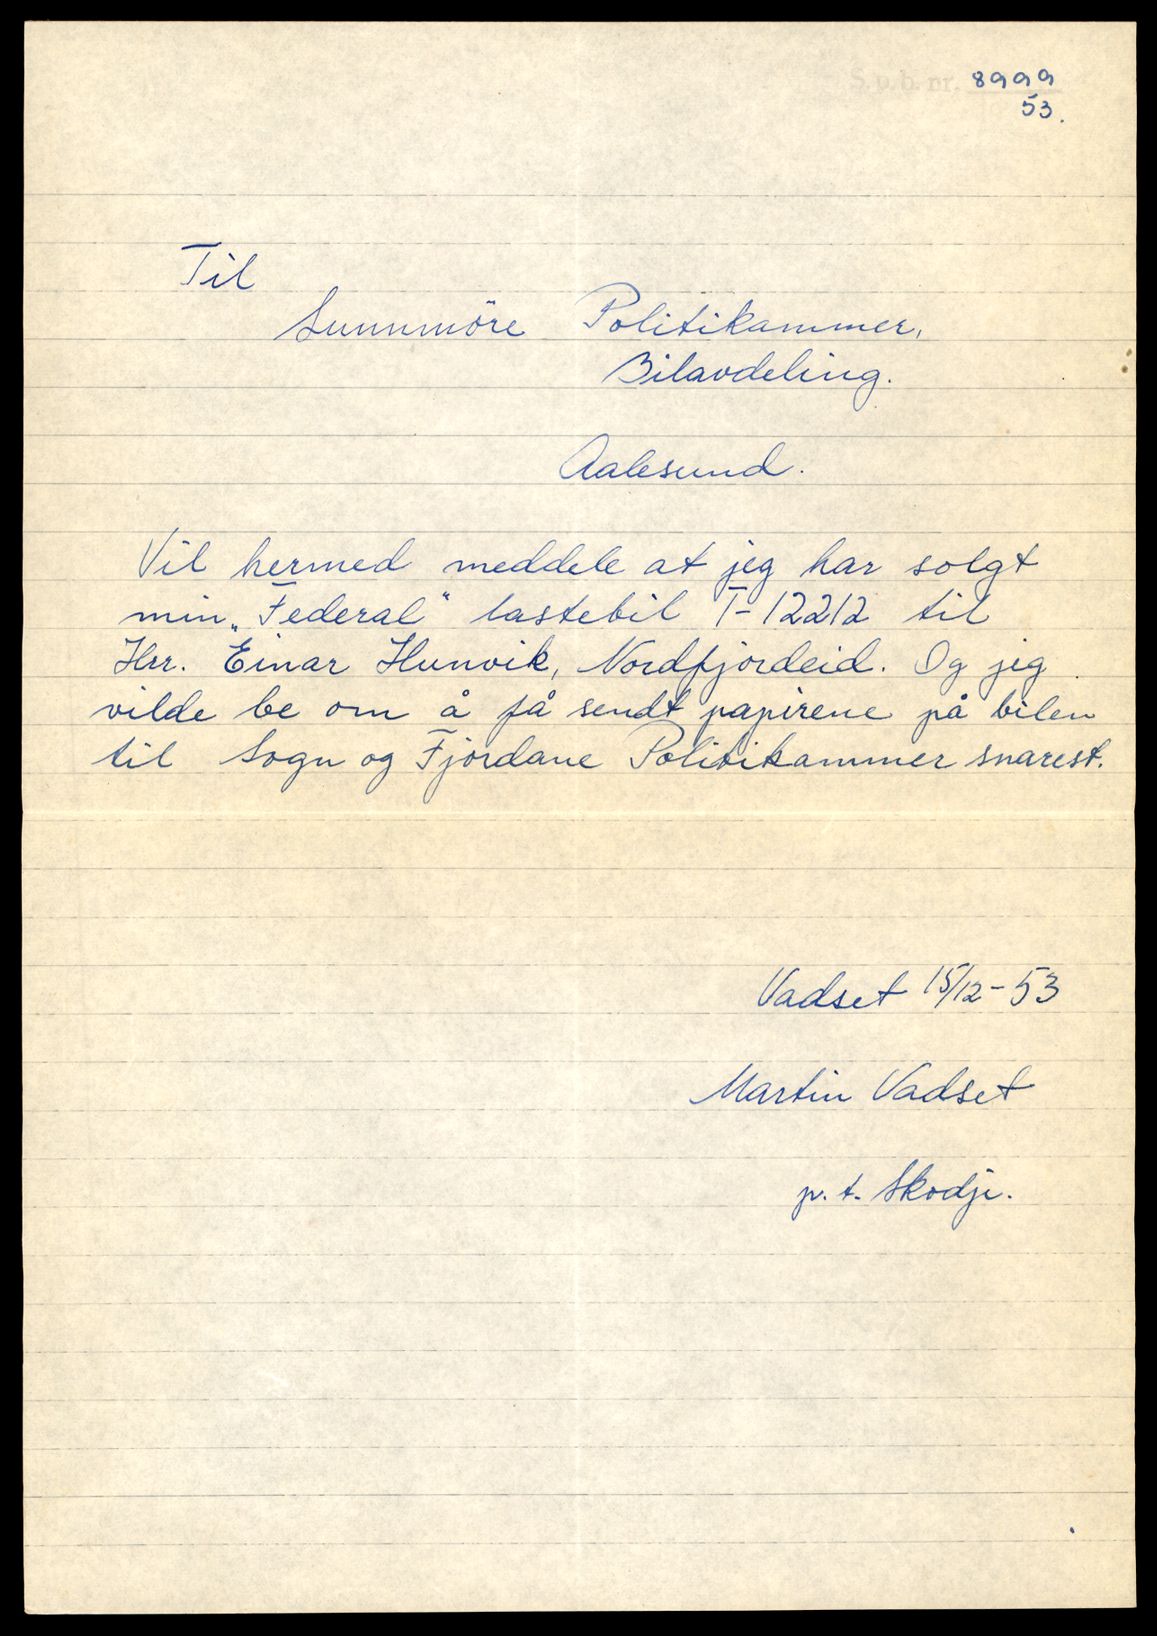 S.p.b. nr. 8999
53.
Til
Sunnmöre Politikammer,
Bilavdeling.
Aalesund.
Vil hermed meddele at jeg har solgt
min „Federal“ lastebil T-12212 til
Hrr. Einar Hunvik, Nordfjordeid. Og jeg
vilde be om å få sendt papirene på bilen
til Sogn og Fjordane Politikammer snarest.
Vadset 15/12-53
Martin Vadset
p.t. Skodje.